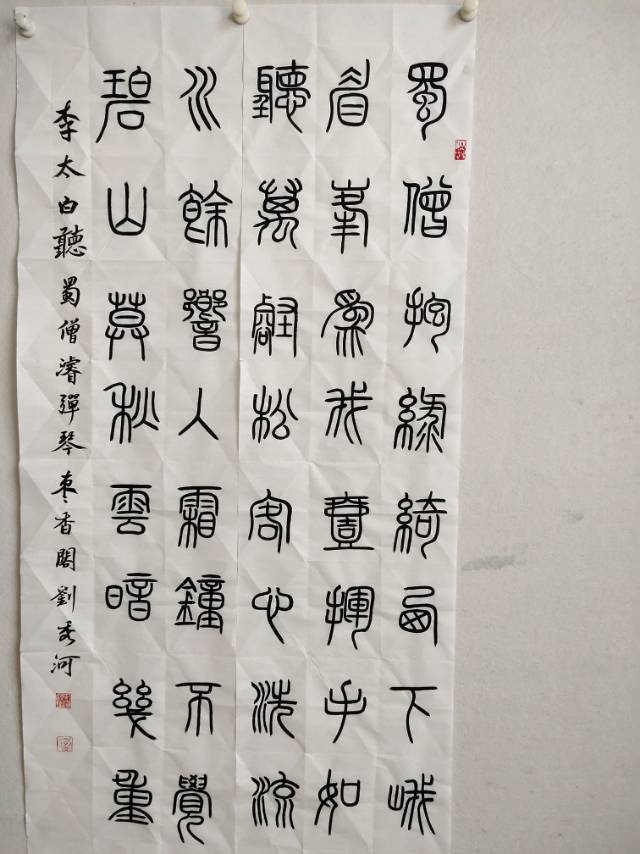 蜀僧抱綠綺西下峨
眉峯爲我壹揮手如
聽萬壑松客心洗流
水餘響入霜鐘不覺
碧山莫秋雲暗幾重
李太白聽蜀僧濬彈琴枣香閣劉秀河